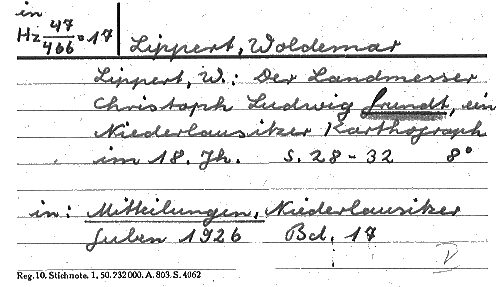 in
Hz 47/466 . 17
Lippert, Woldemar
Lippert, W.: Der Landmesser
Christoph Ludwig Grundt, ein
Niederlausitzer Karthograph
im 18. Jh. S. 28 - 32 8°
in: Mitteilungen, Niederlausitzer
Guben 1926 Bd. 17
Reg. 10. Stichnote. 1, 50. 232000. A. 803. S. 4062